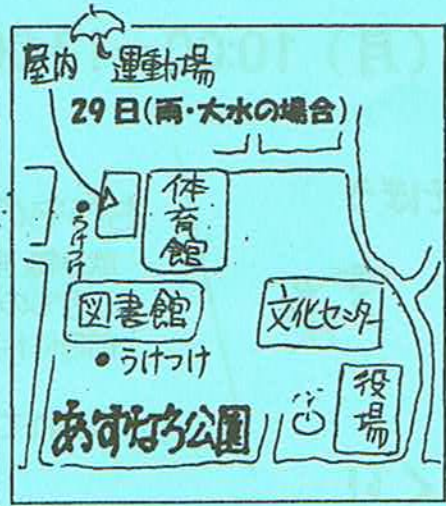 屋内運動場
29日(雨・大水の場合)
体育館
うけつけ
図書館
文化センター
うけつけ
役場
あすなろ公園